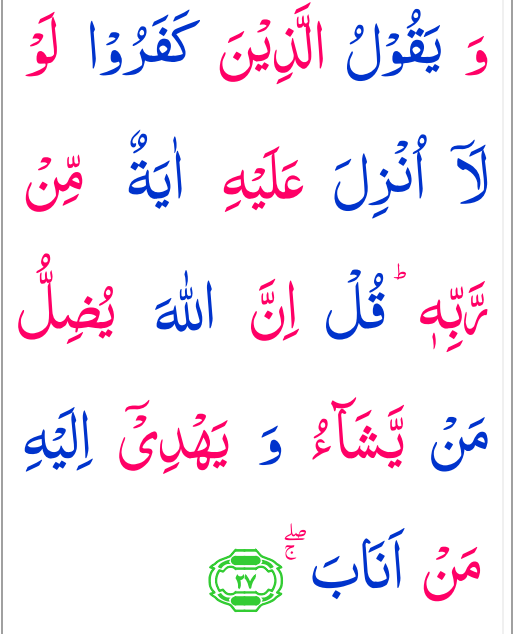 وَ یَقُوْلُ الَّذِیْنَ كَفَرُوْا لَوْ
لَاۤ اُنْزِلَ عَلَیْهِ اٰیَةٌ مِّنْ
رَّبِّهٖؕ قُلْ اِنَّ اللّٰهَ یُضِلُّ
مَنْ یَّشَآءُ وَ یَهْدِیْۤ اِلَیْهِ
مَنْ اَنَابَۖۚ ﴿۲۷﴾